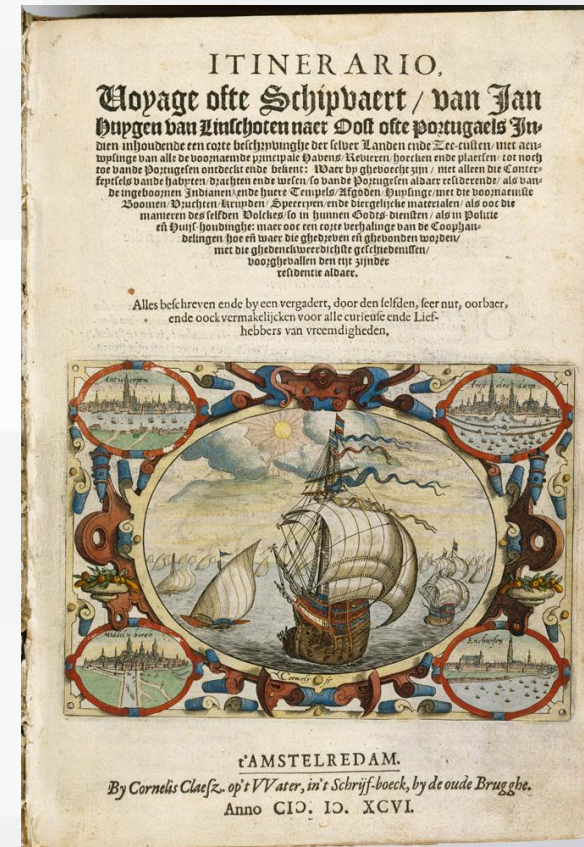 ITINERARIO,
Voyage ofte Schipvaert / van Jan
Huygen van Linschoten naer Oost ofte Portugaels In-
dien inhoudende een corte beschryvinghe der selver Landen ende Zee-custen / met aen-
wysinge van alle de voornaemde principale Havens / Revieren / hoecken ende plaetsen / tot noch
toe vande Portugesen ontdeckt ende bekent: Waer by ghevoecht zijn / niet alleen die Conter-
feytsels vande habyten / drachten ende wesen / so vande Portugesen aldaer residerende / als van-
de ingeboornen Indianen / ende huere Tempels / Afgoden / Huysinge / met die voornaemste
Boomen / Vruchten / Kruyden / Speceryen / ende diergelijcke materialen / als ooc die
manieren des selfden Volckes / so in hunnen Godts-diensten / als in Politie
eñ Huijs-houdinghe: maer ooc een corte verhalinge van de Coophan-
delingen / hoe eñ waer die ghedreven eñ ghevonden worden /
met die ghedenckweerdichste geschiedenissen /
voorghevallen den tijt zijnder
residentie aldaer.
Alles beschreven ende by een vergadert, door den selfden, seer nut, oorbaer,
ende oock vermakelijcken voor alle curieuse ende Lief-
hebbers van vreemdigheden.
Middelborch
Enchuysen
t'AMSTELREDAM.
By Cornelis Claesz. op't VVater, in't Schrijf-boeck, by de oude Brugghe.
Anno CIↃ. IↃ. XCVI.